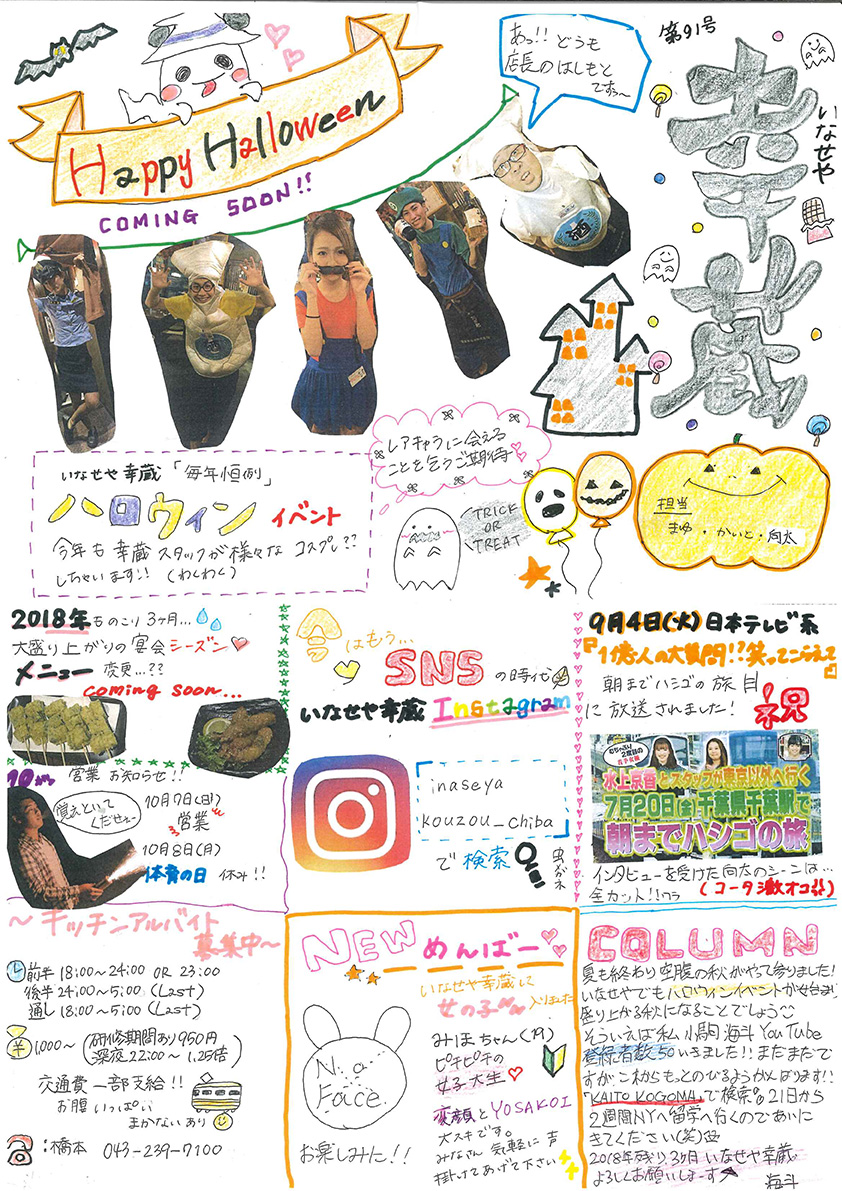 第91号
いなせや
幸蔵
あっ!! どうも
店長のはしもと
ですっ～
Happy Halloween
COMING SOON!!
酒
レアキャラに会える
ことを乞うご期待
TRICK
OR
TREAT
担当
まゆ・かいと・向太
いなせや 幸蔵 「毎年恒例」
ハロウィン イベント
今年も 幸蔵スタッフが様々な コスプレ??
しちゃいます!! (わくわく)
2018年ものこり3ヶ月...
大盛り上がりの宴会シーズン
メニュー 変更...??
coming soon...
10月の 営業 お知らせ!!
覚えといて
くだせぇー
10月7日(日)
営業
10月8日(月)
体育の日 休み!!
今はもう...
SNSの時代
いなせや幸蔵 Instagram
inaseya
kouzou_chiba
で検索
虫めがね
9月4日(火)日本テレビ系
『1億人の大質問!?笑ってこらえて』
朝までハシゴの旅 目
に放送されました! 祝
水上京香とスタッフが東京以外へ行く
7月20日(金)千葉県千葉駅で
朝までハシゴの旅
インタビューを受けた向太のシーンは...
全カット!!ワラ
(コータ激オコ!!)
～キッチンアルバイト
募集中～
前半 18:00～24:00 OR 23:00
後半 24:00～5:00 (Last)
通し 18:00～5:00 (Last)
¥ 1,000～ (研修期間あり950円
深夜22:00～ 1.25倍)
交通費 一部支給!!
お腹いっぱい
まかないあり
:橋本 043-239-7100
NEW めんばー
いなせや幸蔵に
女の子 入りました
No
Face
お楽しみに!!
みほちゃん(19)
ピチピチの
女子大生
変顔とYOSAKOI
大スキです。
みなさん 気軽に 声
掛けてあげて下さい
COLUMN
夏も終わり 空腹の秋がやって参りました!
いなせやでもハロウィンイベントが始まり
盛り上がる秋になることでしょう
そういえば私 小駒 海斗 YouTube
登録者数50いきました!! まだまだで
すがこれからもっとのびるようがんばります!!
「KAITO KOGOMA」で検索 21日から
2週間NYへ留学へ行くのであいに
きてください(笑)
2018年残り3ヶ月 いなせや幸蔵
よろしくお願いしまーす
海斗